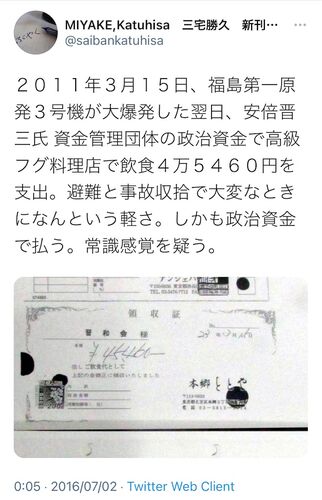 MIYAKE,Katuhisa 三宅勝久 新刊…
@saibankatuhisa
２０１１年３月１５日、福島第一原
発３号機が大爆発した翌日、安倍晋
三氏 資金管理団体の政治資金で高級
フグ料理店で飲食４万５４６０円を
支出。避難と事故収拾で大変なとき
になんという軽さ。しかも政治資金
で払う。常識感覚を疑う。
領収証
晋和会様
¥45460-
但し飲食代として
上記の金額正に領収いたしました
本郷
0:05 · 2016/07/02 · Twitter Web Client